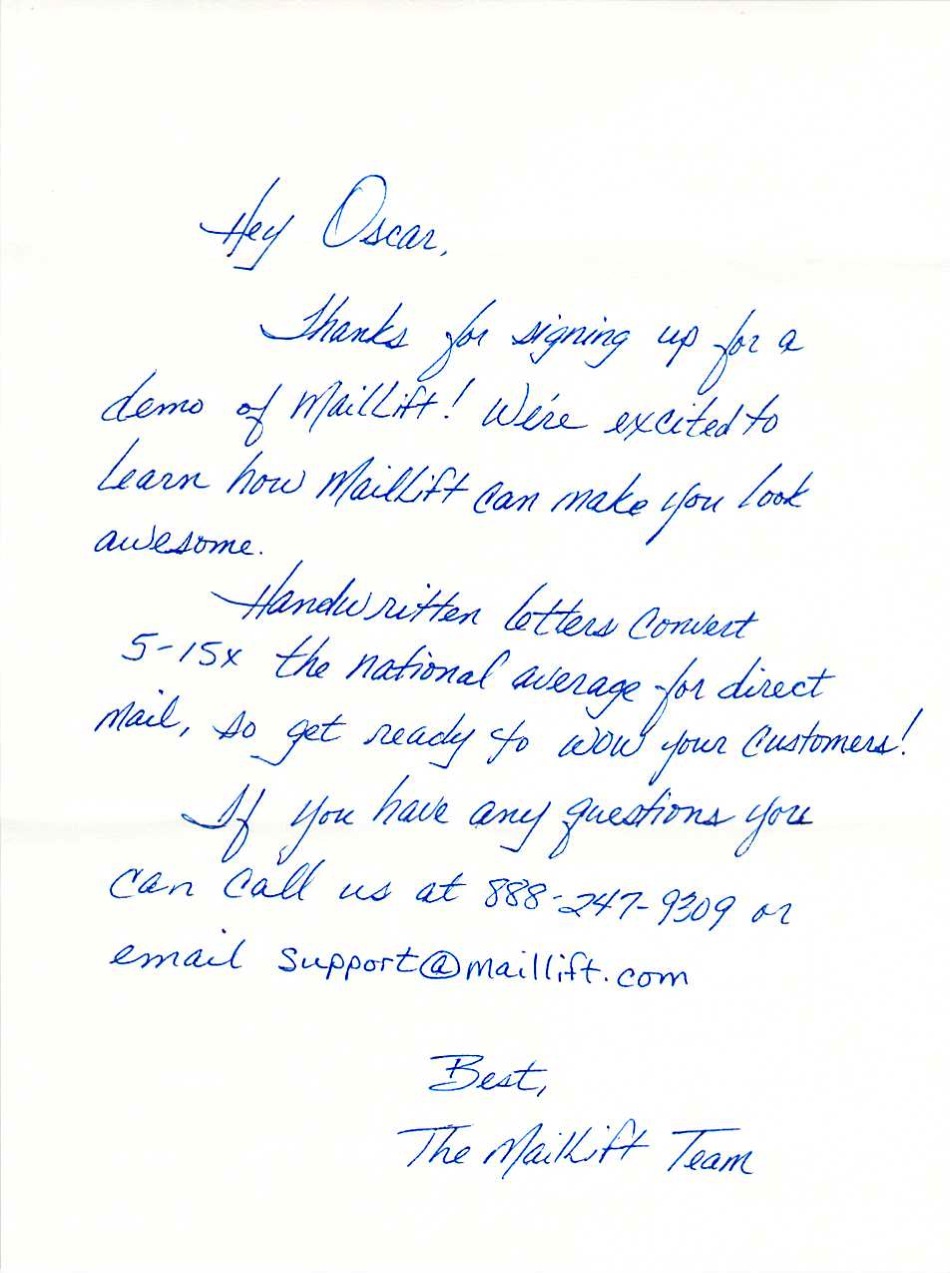 Hey Oscar,
Thanks for signing up for a
demo of MailLift! We're excited to
learn how MailLift can make you look
awesome.
Handwritten letters convert
5-15x the national average for direct
mail, so get ready to wow your customers!
If you have any questions you
can call us at 888-247-9309 or
email support@maillift.com
Best,
The MailLift Team